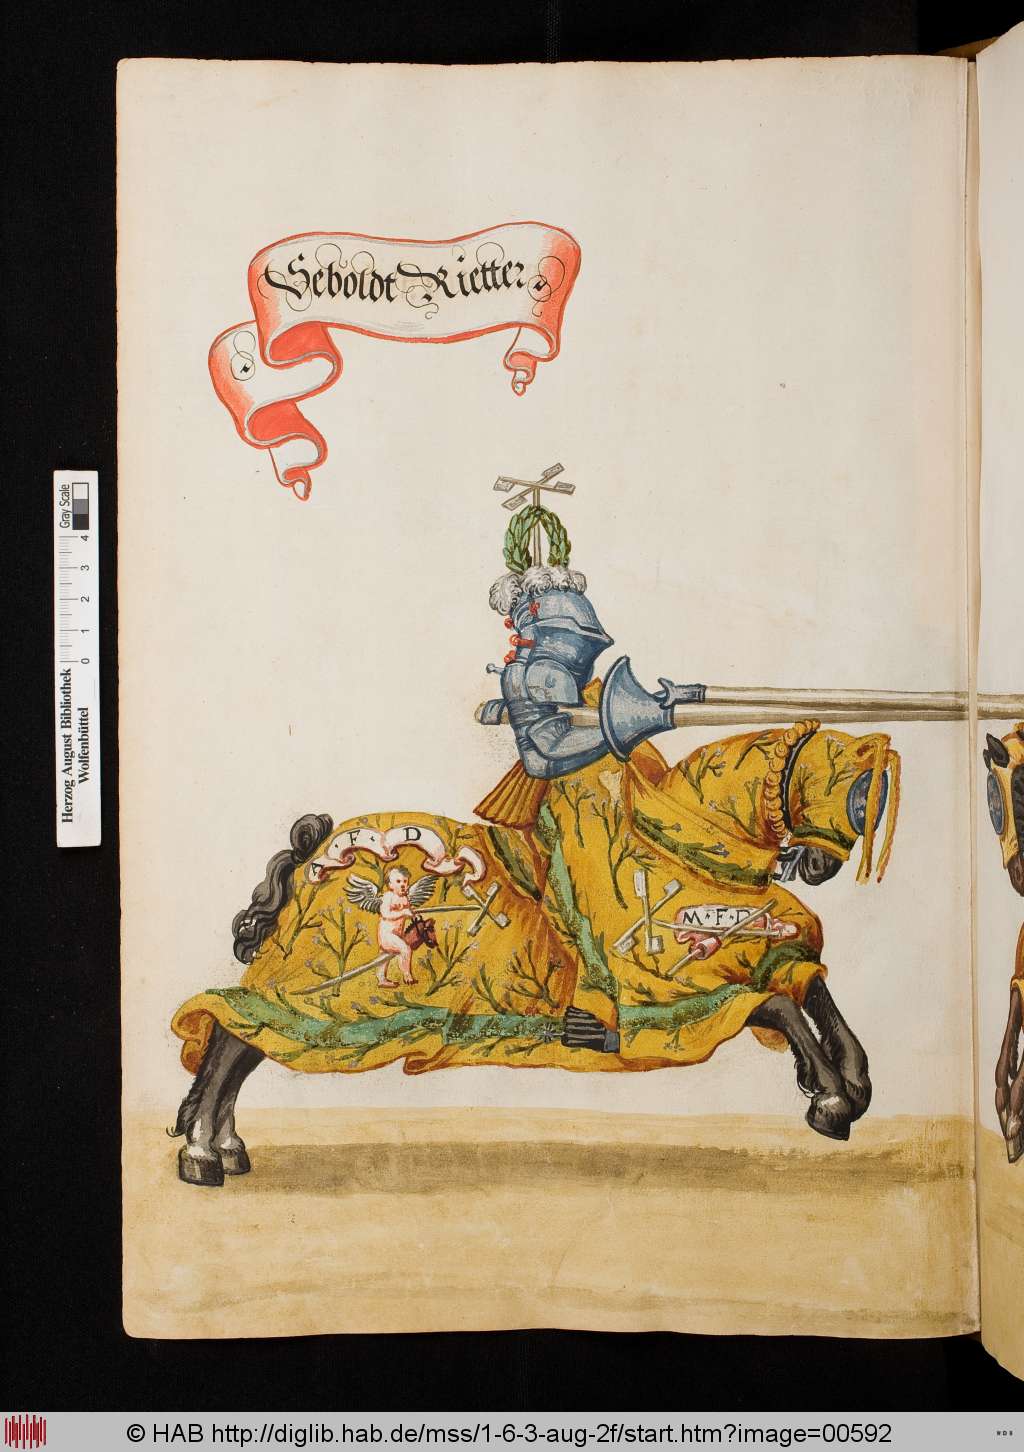 Seboldt Rietter
F · D
M · F · D
Gray Scale
0 1 2 3 4
Herzog August Bibliothek
Wolfenbüttel
© HAB http://diglib.hab.de/mss/1-6-3-aug-2f/start.htm?image=00592